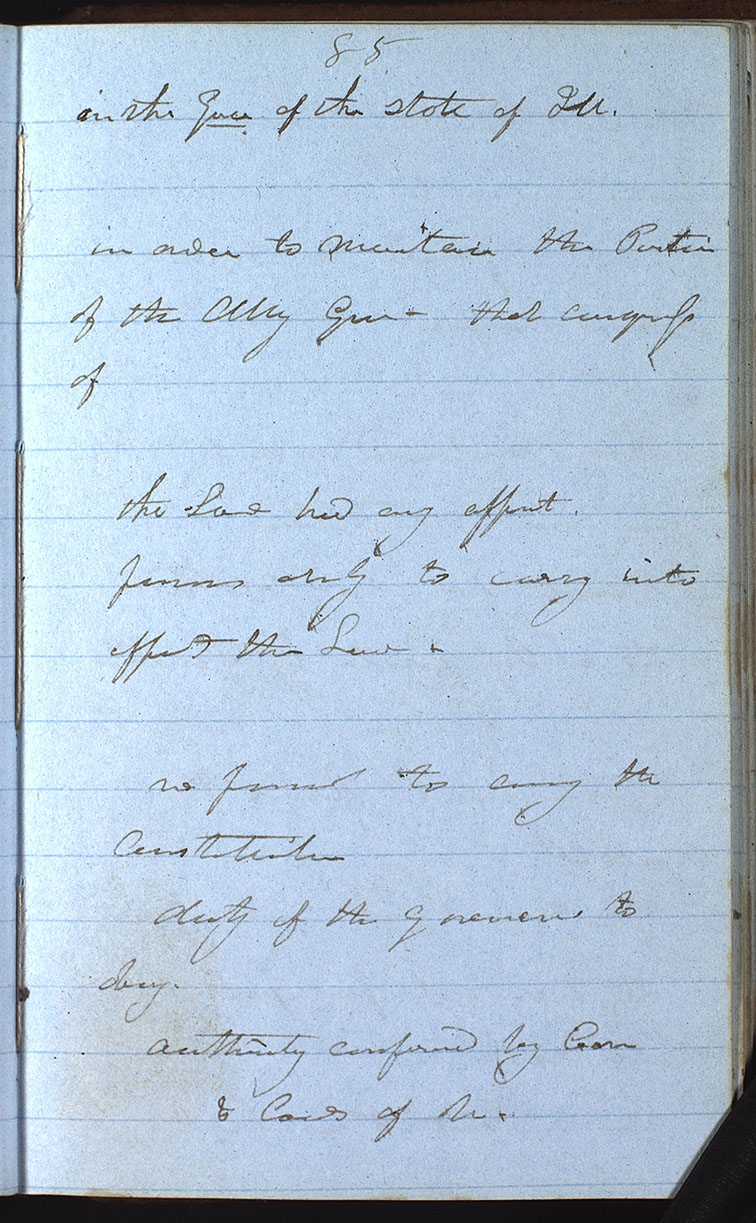 85
in the Gov of the state of Ill.
in order to maintain the Position
of the Atty Gen - that congress
of
the Law had any effect.
powers only to carry into
effect the Law -
no power to carry the
Constitution
duty of the Governor to
deny.
authority conferred by Con
& Laws of